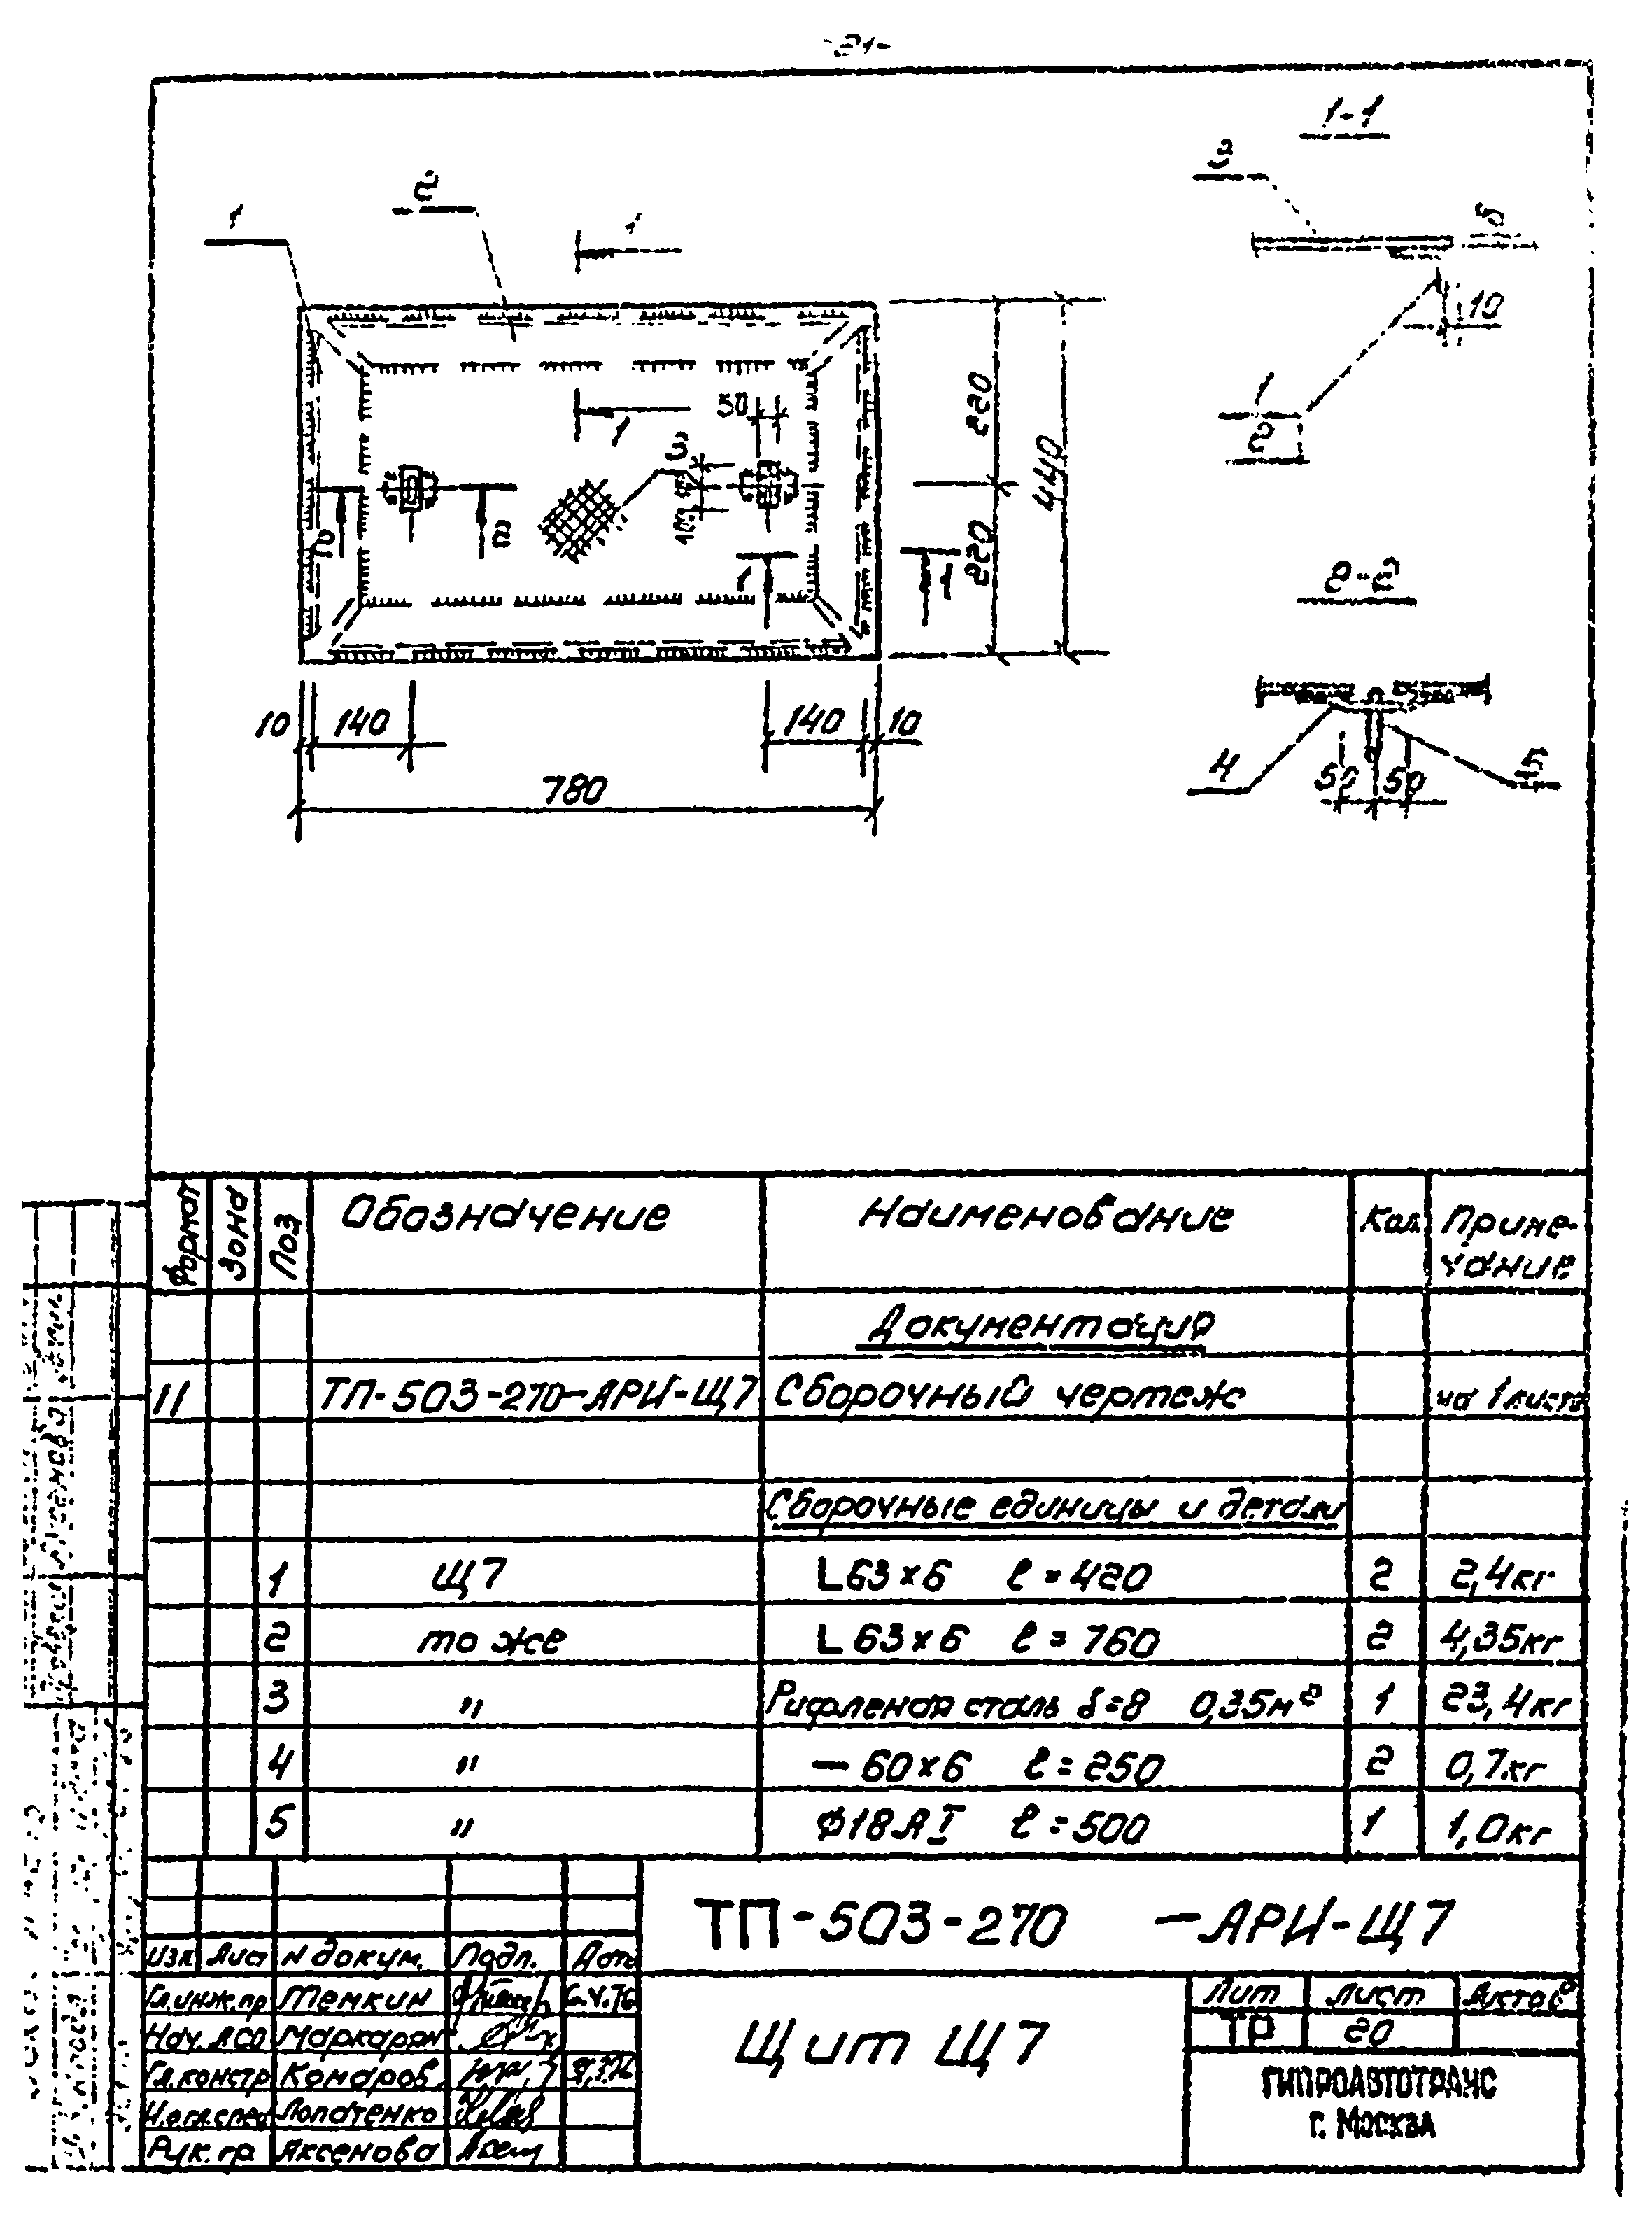 -21-
1-1
3
2
1
1
8
10
50
220
440
1
3
1
2
2
2
220
1
1
2-2
10
140
140
10
4
50
50
5
780
Формат
Зона
Поз
Обозначение
Наименование
Кол.
Приме-
чание
Документация
11
ТП-503-270-АРИ-Щ7
Сборочный чертеж
на 1 листе
Сборочные единицы и детали
1 Щ7 L 63×6 ℓ=420 2 2,4кг
2 то же L 63×6 ℓ=760 2 4,35кг
3 " Рифленая сталь δ=8 0,35м² 1 23,4кг
4 " — 60×6 ℓ=250 2 0,7кг
5 " ϕ18АI ℓ=500 1 1,0кг
ТП-503-270 -АРИ-Щ7
Изм. Лист N докум. Подп. Дата
Гл.инж.пр Темкин
Нач. АСО Маркарян
Гл.констр Комаров
Лопатенко
Рук. гр. Аксенова
Щит Щ7
Лит Лист Листов
ТР 20
ГИПРОАВТОТРАНС
г. Москва